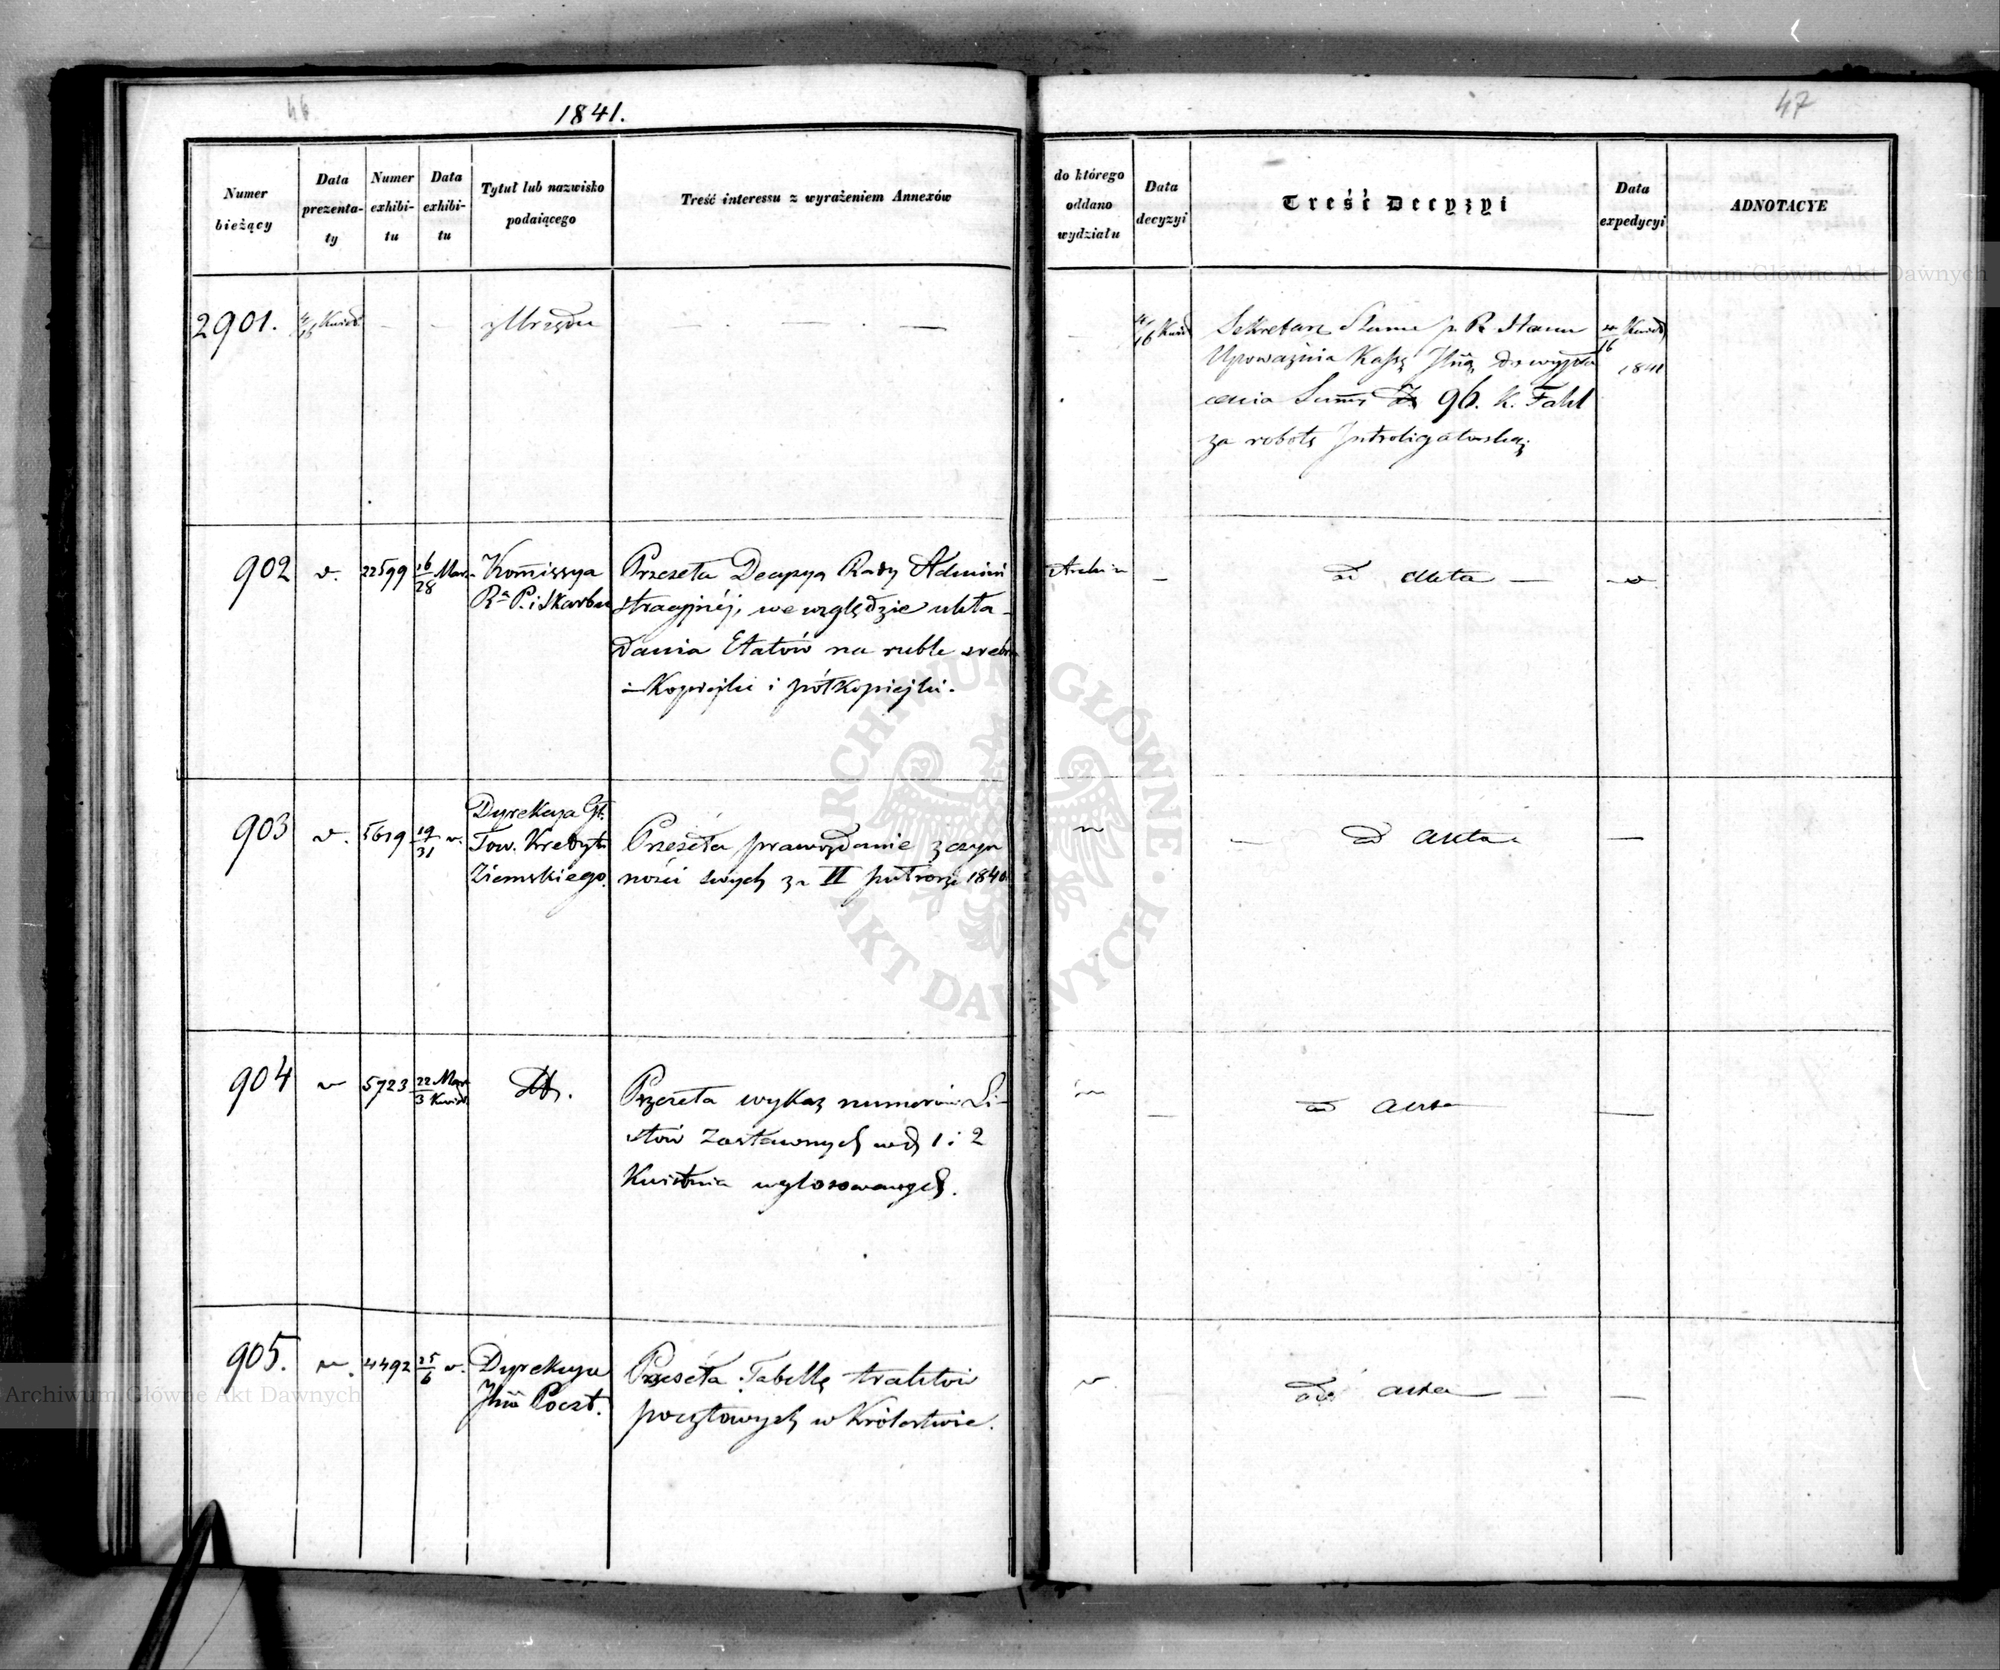 46
1841.
47
Numer bieżący
Data prezenta-ty
Numer exhibi-tu
Data exhibi-tu
Tytuł lub nazwisko podaiącego
Treść interessu z wyrażeniem Annexów
do którego oddano wydziału
Data decyzyi
Treść Decyzyi
Data expedycyi
ADNOTACYE
2901.
4/16 Kwiet.
— —
z Urzędu
— — —
—
4/16 Kwiet
Sekretarz Stanu p. R. Stanu
Upoważnia Kassę Jlną do wypła
cenia Summy 96. k.
za robotę Introligatorską.
4/16 Kwiet
1841
902
v.
22599
16/28 Mar.
Kommissya
Ra P. i Skarbu
Przeseła Decyzyą Rady Admini
stracyjnéj, we względzie ukła-
dania Etatów na ruble srebrn
i Kopiejki i półkopiejki.
—
ad Acta —
903
v.
5619
19/31 v.
Dyrekcya Gł.
Tow. Kredyt.
Ziemskiego.
Przeseła sprawozdanie z czyn
ności swych za II półrocze 1840
—
ad Acta
—
904
5723
22 Mar/3 Kwiet.
Przeseła wykaz numerów Li-
stów Zastawnych w d. 1 i 2
Kwietnia wylosowanych.
—
ad Acta
—
905.
4492
25/6 v.
Dyrekcya
Jlna Poczt.
Przeseła Tabellę traktów
pocztowych w Królestwie.
—
ad acta —
—
Archiwum Główne Akt Dawnych
ARCHIWUM GŁÓWNE AKT DAWNYCH
Archiwum Główne Akt Dawnych